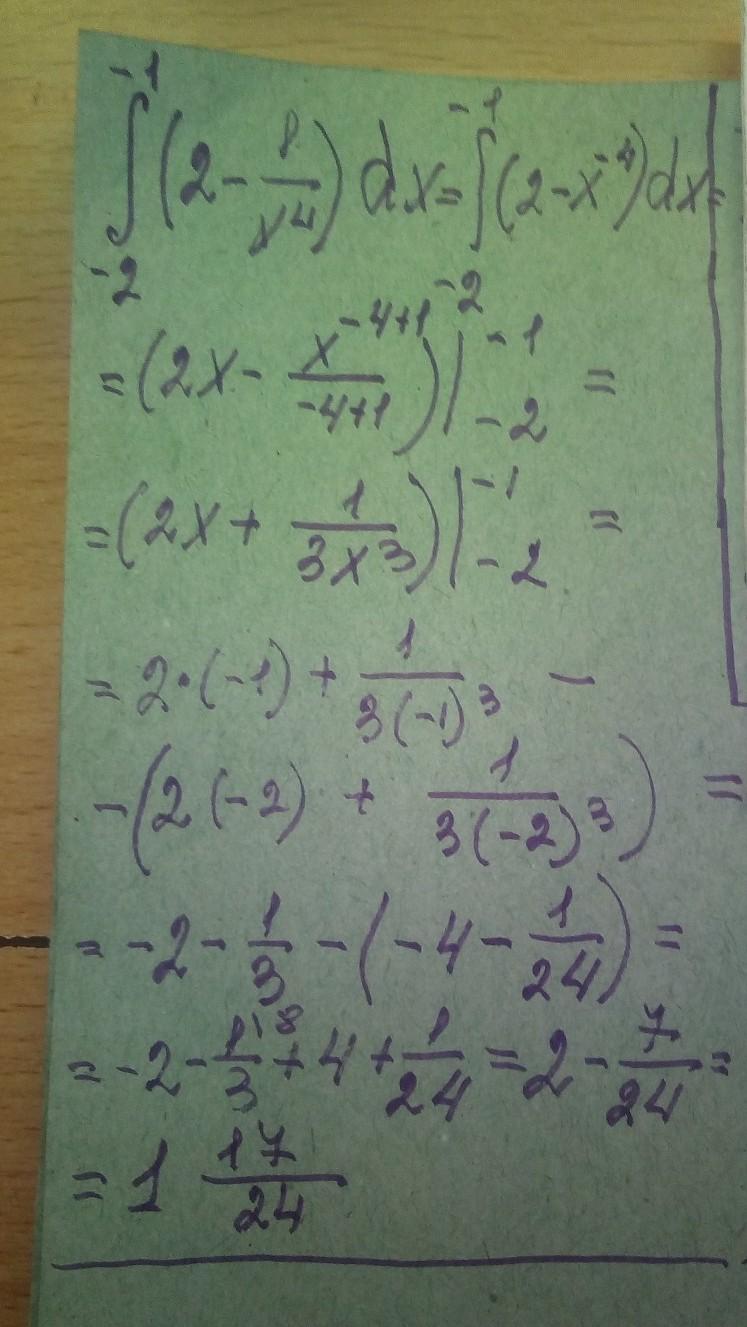 ∫_{-2}^{-1} (2 - 1/x⁴) dx = ∫_{-2}^{-1} (2 - x⁻⁴) dx =
= (2x - x^{-4+1}/(-4+1)) |_{-2}^{-1} =
= (2x + 1/(3x³)) |_{-2}^{-1} =
= 2·(-1) + 1/(3(-1)³) -
- (2(-2) + 1/(3(-2)³)) =
= -2 - 1/3 - (-4 - 1/24) =
= -2 - 1\8/3 + 4 + 1/24 = 2 - 7/24 =
= 1 17/24